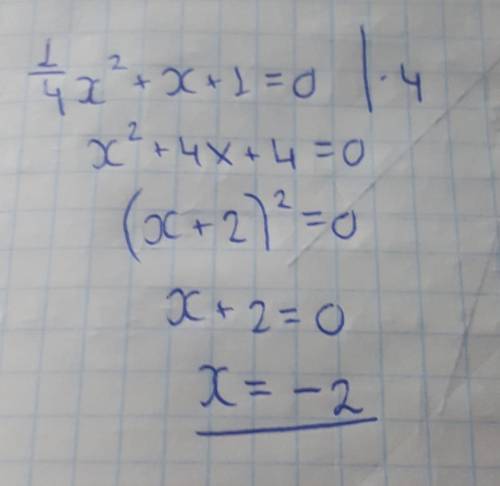 1/4 x² + x + 1 = 0 | · 4
x² + 4x + 4 = 0
(x + 2)² = 0
x + 2 = 0
x = -2